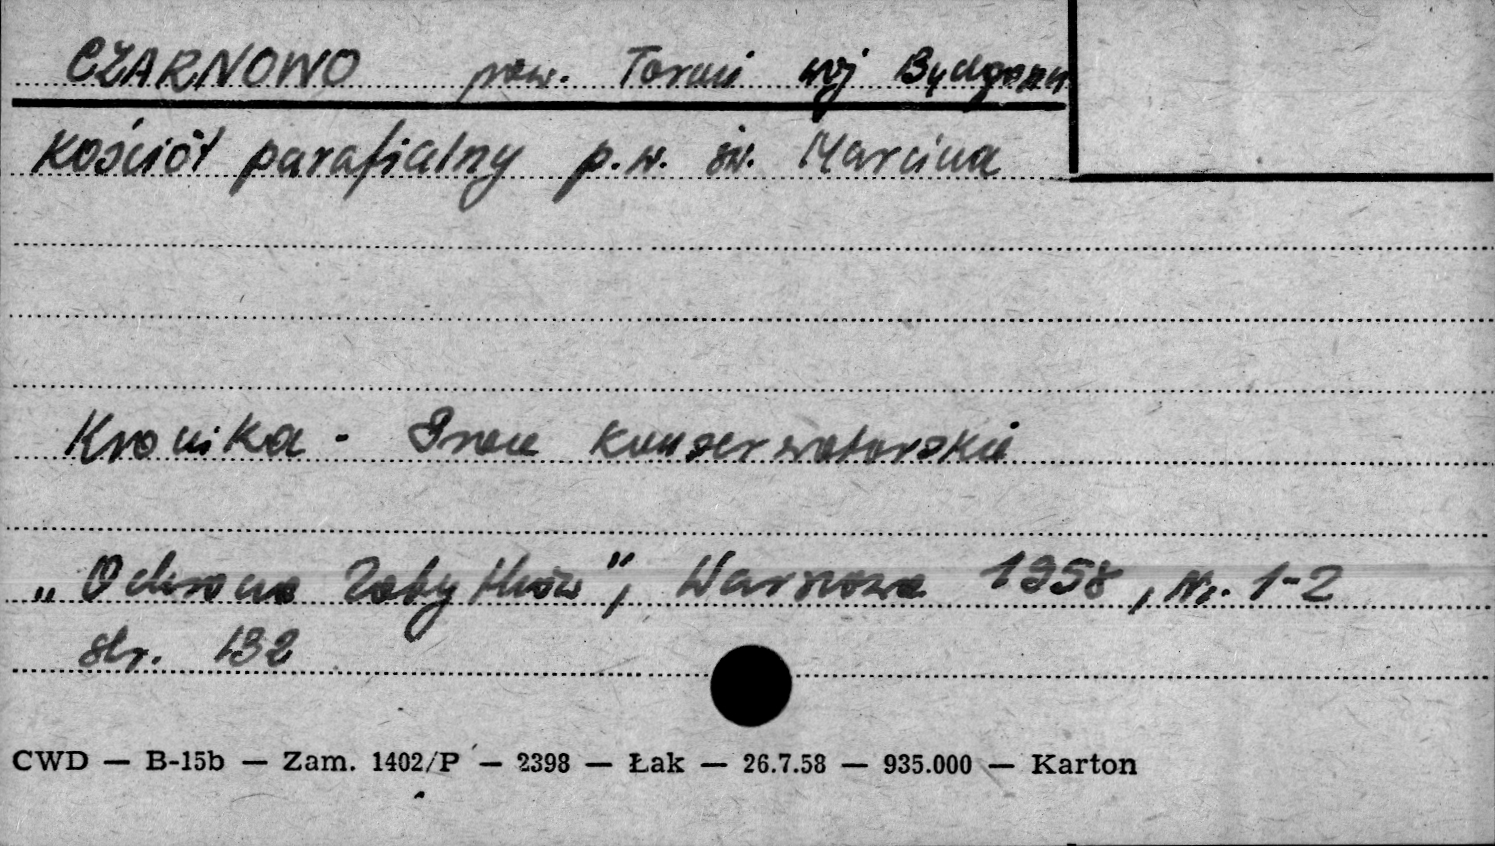 CZARNOWO pow. Toruń woj Bydgoszcz
Kościół parafialny p.w. św. Marcina
Kronika - Prace konserwatorskie
„Ochrona Zabytków”, Warszawa 1958, Nr. 1-2
str. 132
CWD — B-15b — Zam. 1402/P — 2398 — Łak — 26.7.58 — 935.000 — Karton